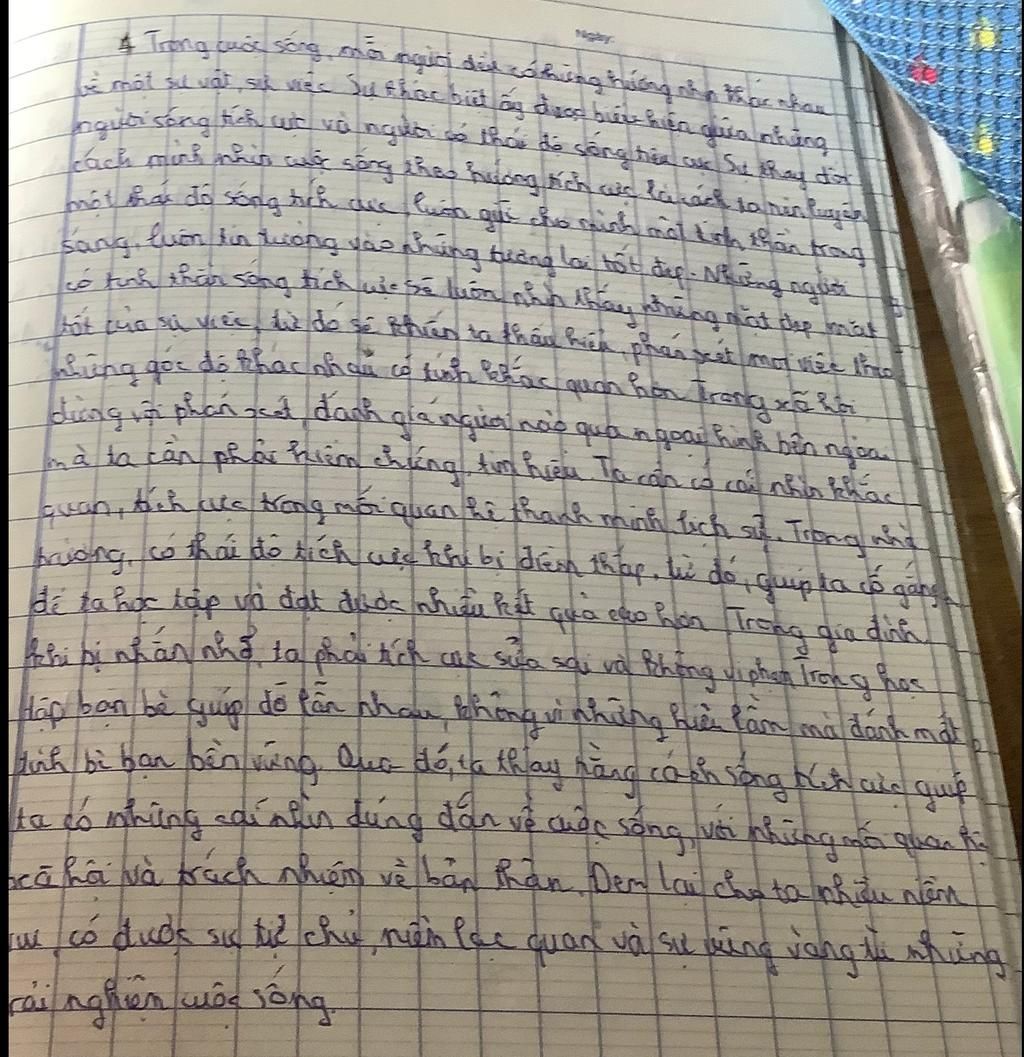 Ngày:
4 Trong cuộc sống, mỗi người đều có những hướng nhìn khác nhau
về một sự vật, sự việc Sự khác biệt ấy được biểu hiện giữa những
người sống tích cực và người có thái độ sống tiêu cực Sự thay đổi
cách mình nhìn cuộc sống theo hướng tích cực là cách ta rèn luyện
một thái độ sống tích cực, luôn giữ cho mình một tinh thần trong
sáng, luôn tin tưởng vào những tương lai tốt đẹp. Những người
có tinh thần sống tích cực sẽ luôn nhìn thấy những mặt đẹp mặt
tốt của sự việc, từ đó sẽ khiến ta thấu hiểu, phán xét mọi việc theo
những góc độ khác nhau có tính khác quan hơn Trong xã hội
đừng vội phán xét, đánh giá người nào qua ngoại hình bên ngoài
mà ta cần phải kiểm chứng, tìm hiểu. Ta cần có cái nhìn khác
quan, tích cực trong mối quan hệ thanh minh lịch sử. Trong nhà
trường, có thái độ tích cực khi bị điểm thấp, từ đó, giúp ta cố gắng
để ta học tập và đạt được nhiều kết quả cao hơn Trong gia đình
khi bị nhắn nhở, ta phải tích cực sửa sai và không vi phạm Trong học
tập bạn bè giúp đỡ lẫn nhau, không vì những hiểu lầm mà đánh mất
tình bè bạn bền vững. Qua đó, ta thấy rằng cách sống tích cực giúp
ta có những cái nhìn đúng đắn về cuộc sống, với những mối quan hệ
xã hội và trách nhiệm về bản thân. Đem lại cho ta nhiều niềm
vui, có được sự tự chủ, niềm lạc quan và sự vững vàng từ những
trải nghiệm cuộc sống.